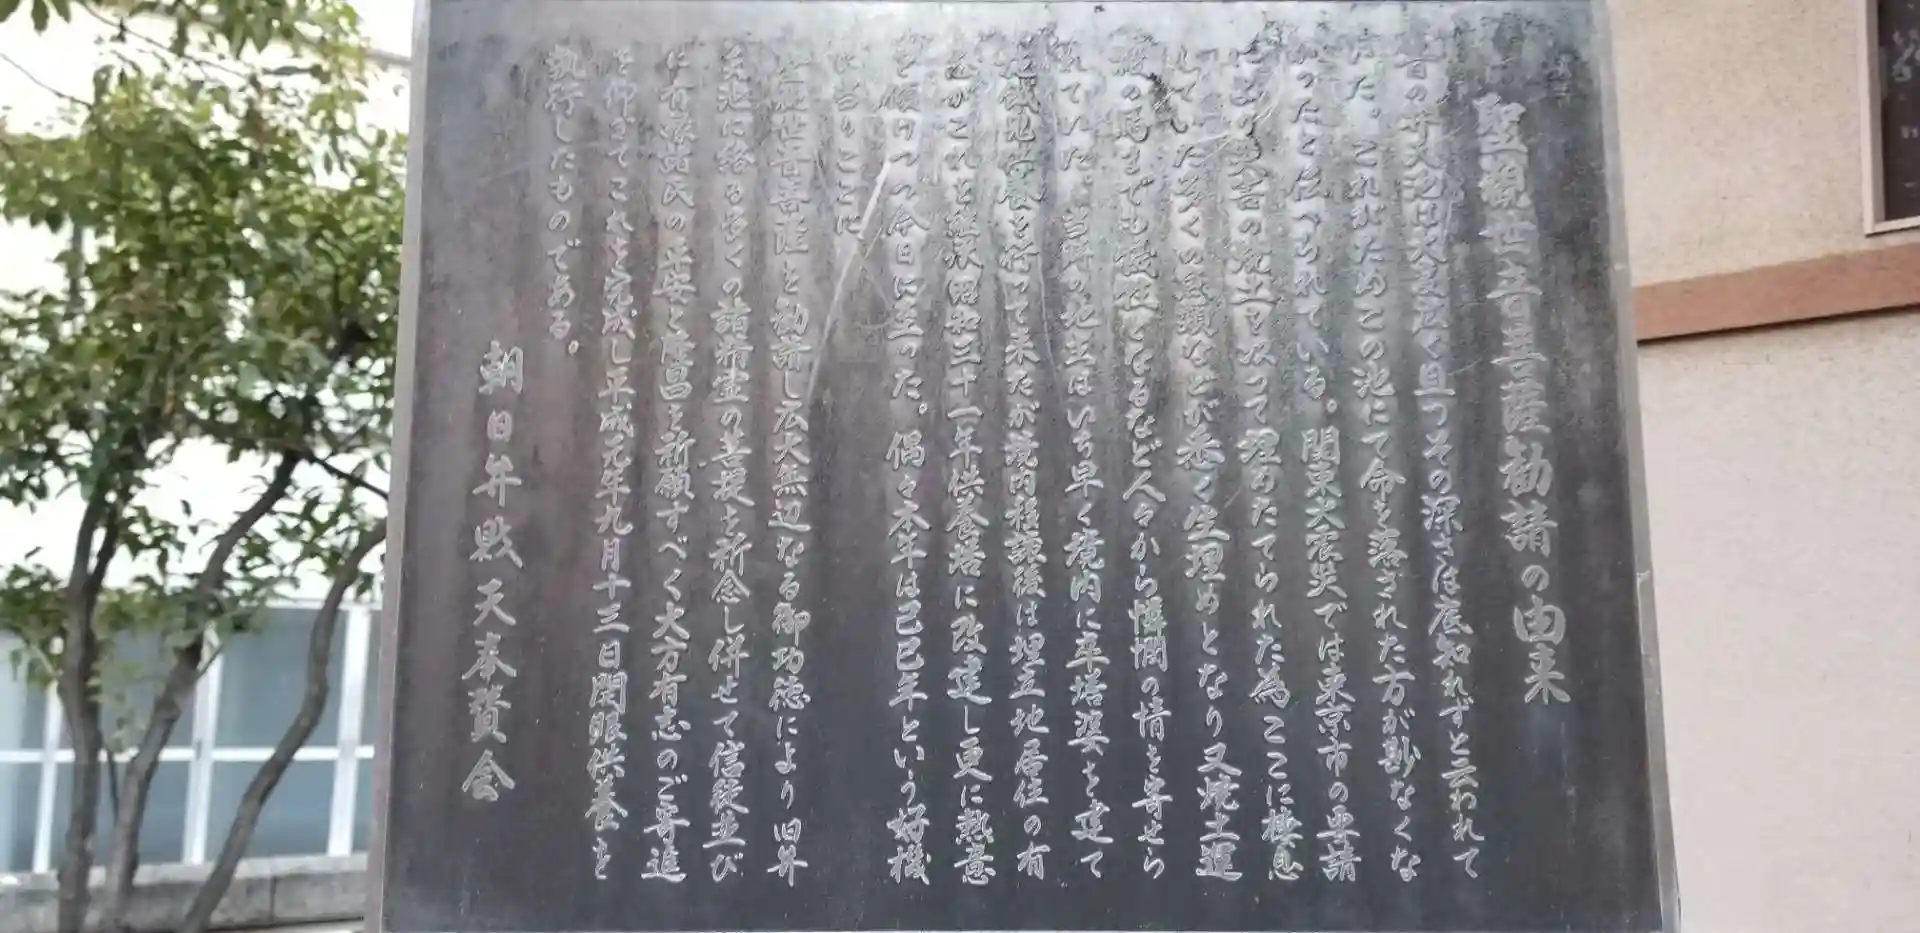 聖観世音菩薩勧請の由来
昔の弁天池は大変広く且つその深さは底知れずと云われて
いた。これがためこの池にて命を落された方が尠なくな
かったと伝へられている。関東大震災では東京市の要請
により被害の焼土を以って埋めたてられた為ここに棲息
していた多くの亀類などが悉く生埋めとなり又焼土運
搬の馬までも犠牲となるなど人々から憐憫の情を寄せら
れていた。当時の地主はいち早く境内に卒塔婆を建て
供養を行って来たが境内移譲後は埋立地居住の有
志がこれを継承昭和三十一年供養塔に改建し更に熱意
を傾けつつ今日に至った。偶々本年は己巳年という好機
に当りここに
聖観世音菩薩を勧請し広大無辺なる御功徳により旧弁
天池に眠る多くの諸精霊の菩提を祈念し併せて信徒並び
に有縁諸氏の平安と隆昌を祈願すべく大方有志のご寄進
を仰ぎてこれを完成し平成元年九月十三日開眼供養を
執行したものである。
朝日弁財天奉賛会